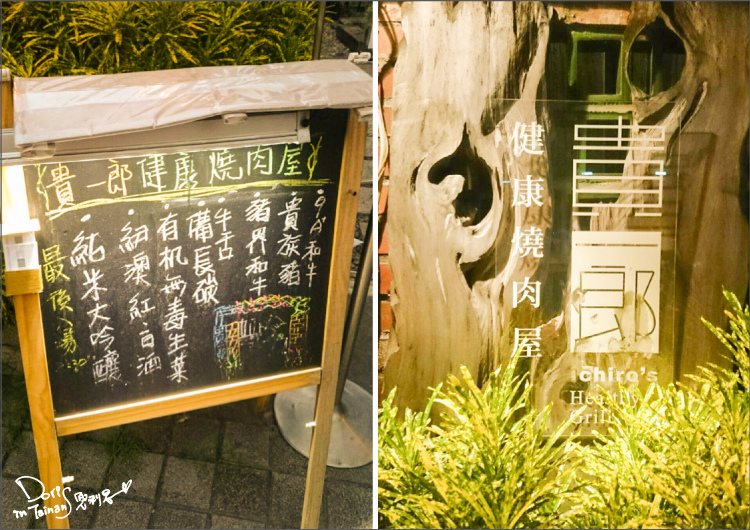 貴一郎健康燒肉屋
•9A⁺和牛
貴族豬
•豬界和牛
•牛舌
•備長碳
•有机無毒生菜
•紐澳紅白酒
•純米大吟釀
最後一湯
健康燒肉屋
郎
ichiro's
Healthy
Grill
Doris
in Tainan